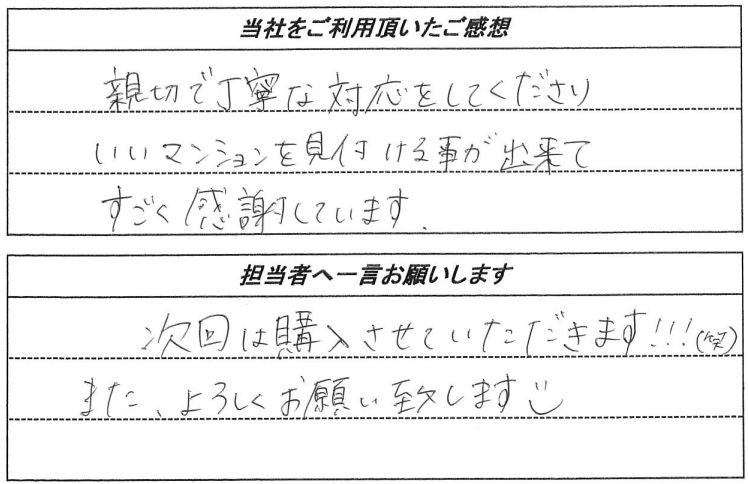 当社をご利用頂いたご感想
親切で丁寧な対応をしてくださり
いいマンションを見付ける事が出来て
すごく感謝しています.
担当者へ一言お願いします
次回は購入させていただきます!!!(笑)
また、よろしくお願い致します